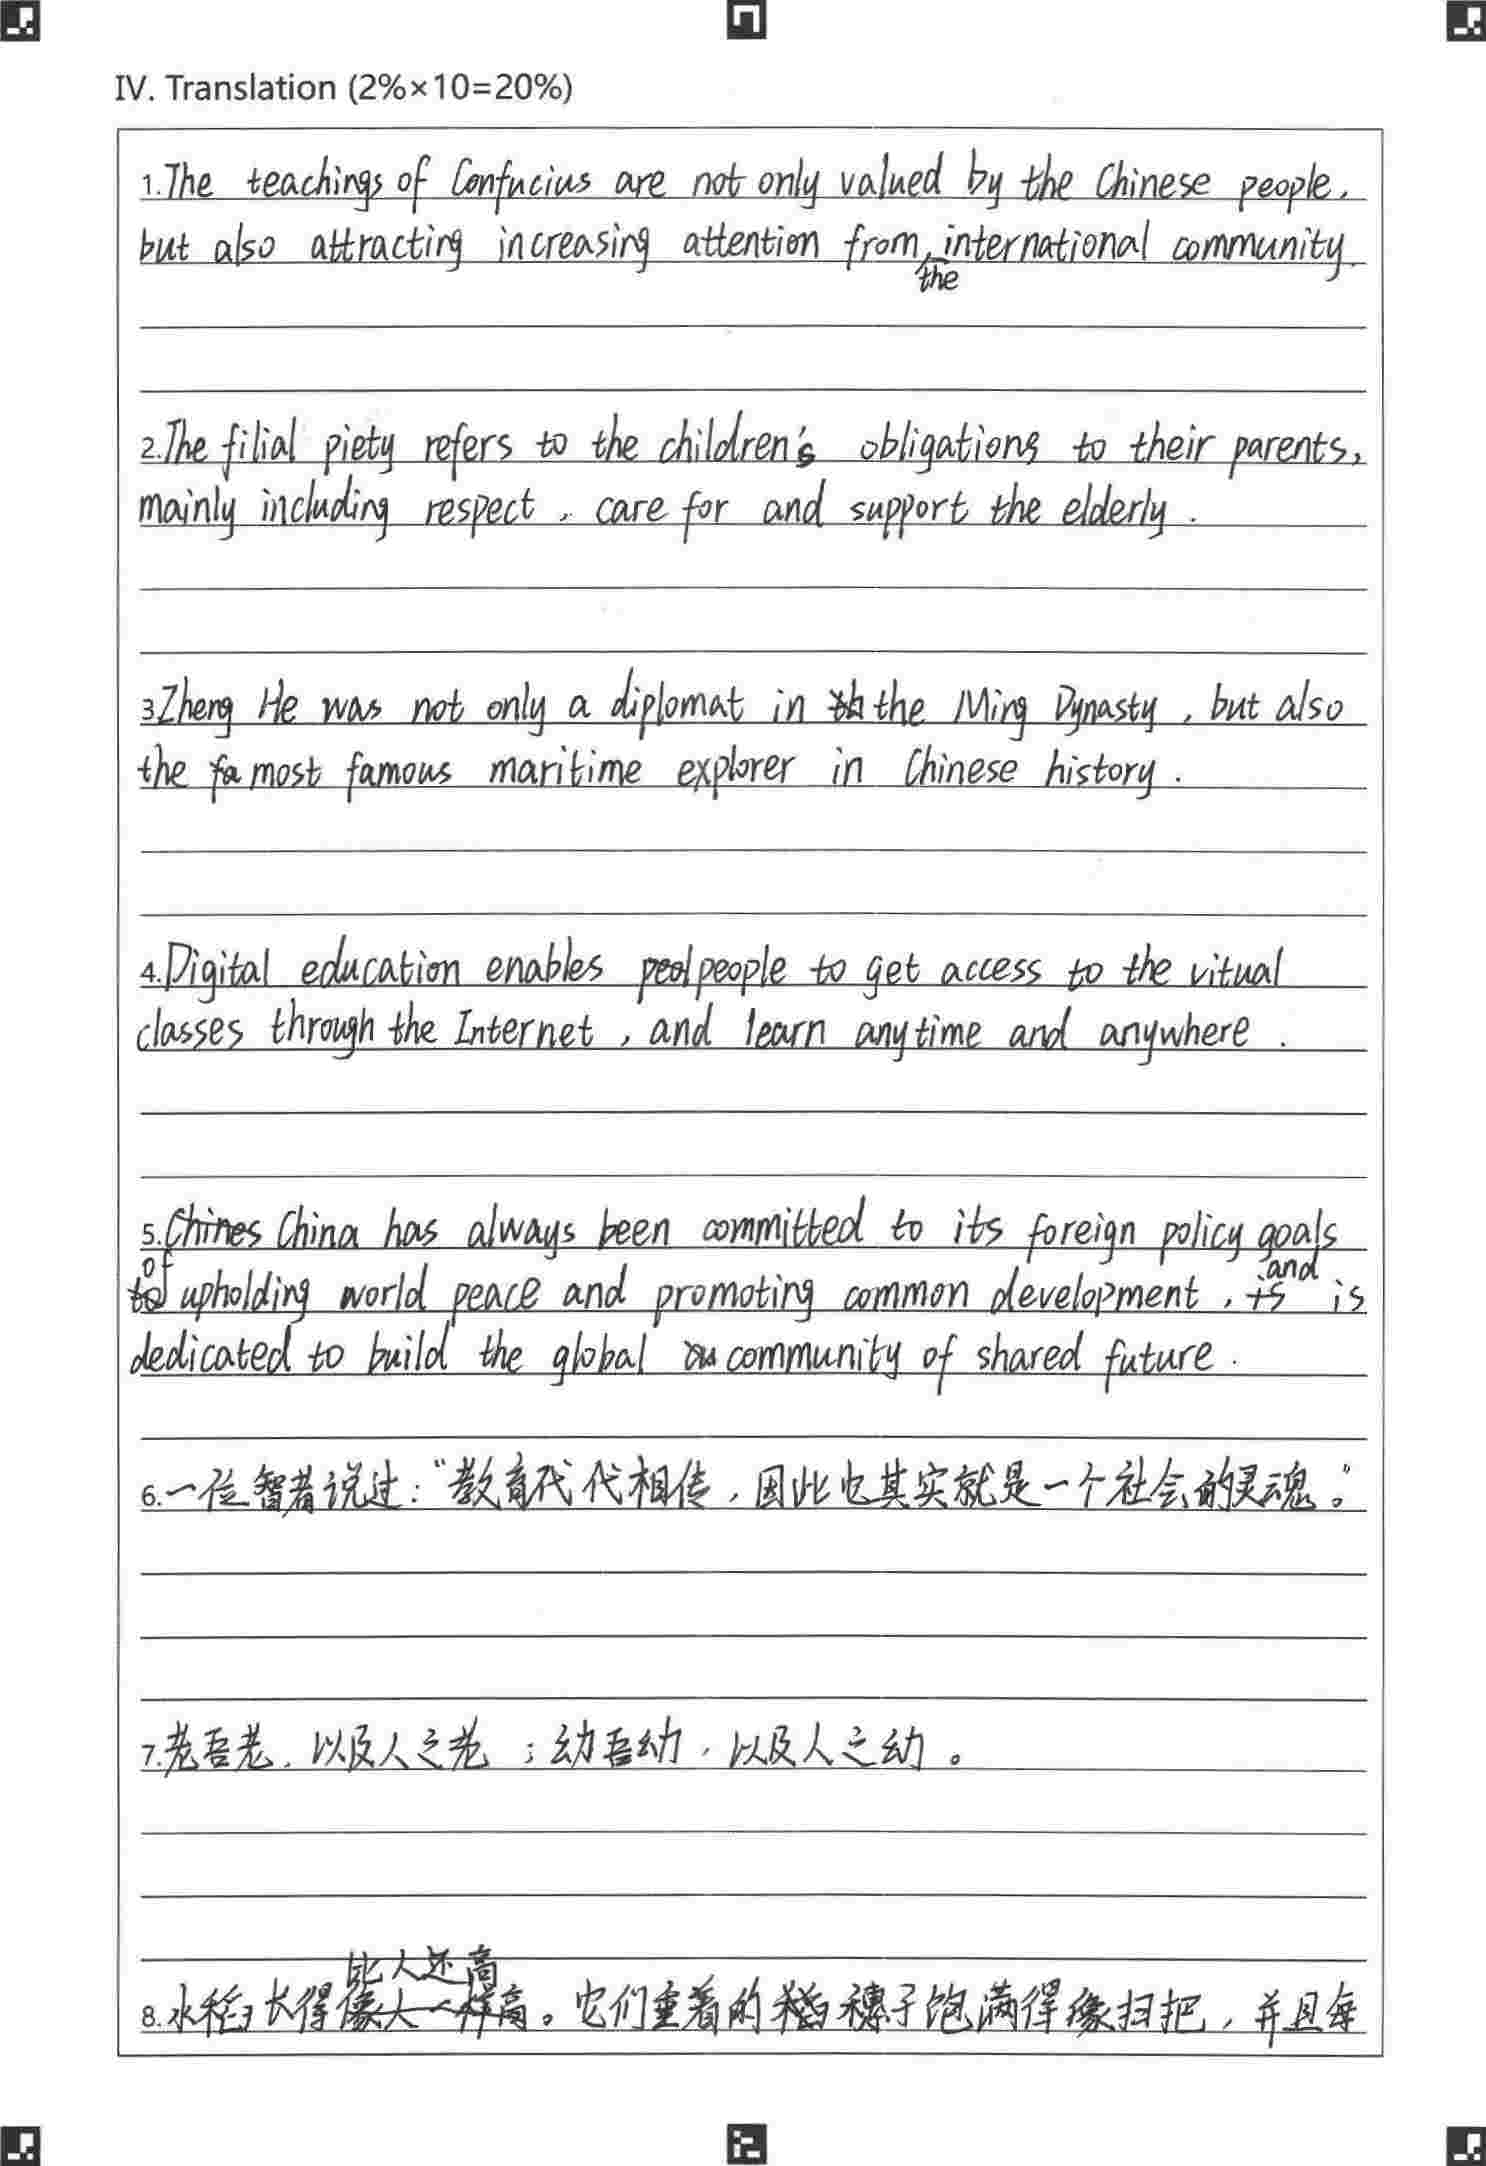 IV. Translation (2%×10=20%)
1. The teachings of Confucius are not only valued by the Chinese people,
but also attracting increasing attention from the international community.
2. The filial piety refers to the children's obligations to their parents,
mainly including respect, care for and support the elderly.
3. Zheng He was not only a diplomat in the Ming Dynasty, but also
the most famous maritime explorer in Chinese history.
4. Digital education enables people to get access to the vitual
classes through the Internet, and learn anytime and anywhere.
5. China has always been committed to its foreign policy goals
of upholding world peace and promoting common development, and is
dedicated to build the global community of shared future.
6. 一位智者说过："教育代代相传，因此它其实就是一个社会的灵魂。"
7. 老吾老，以及人之老；幼吾幼，以及人之幼。
8. 水稻长得比人还高。它们重着的穗子饱满得像扫把，并且每